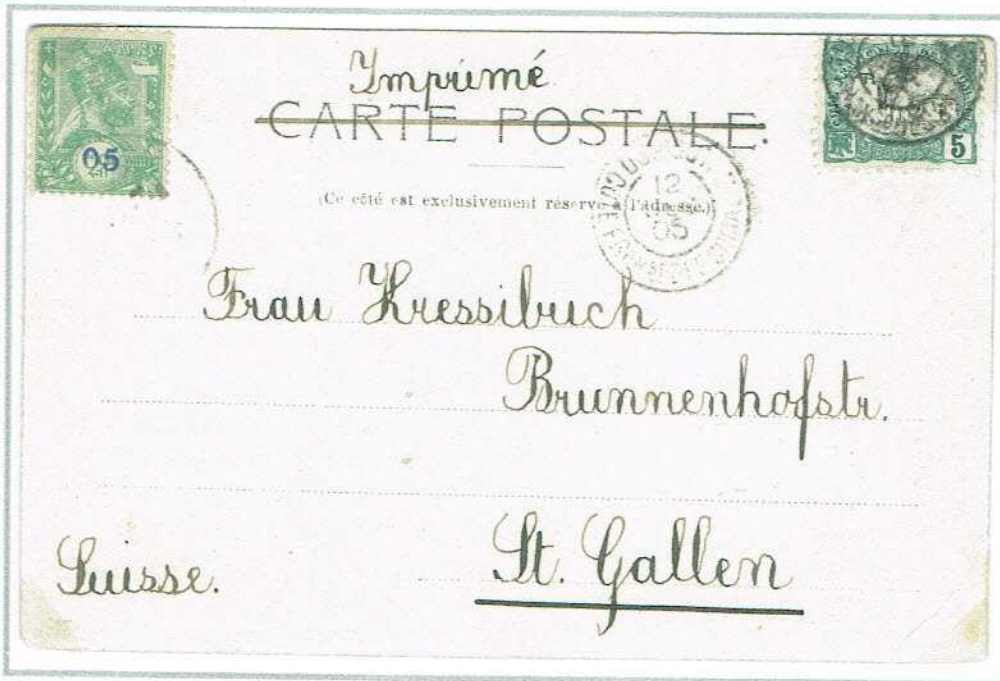 Imprimé
CARTE POSTALE.
(Ce côté est exclusivement réservé à l'adresse.)
05
5
12
05
Frau Kressibuch
Brunnenhofstr.
St. Gallen
Suisse.